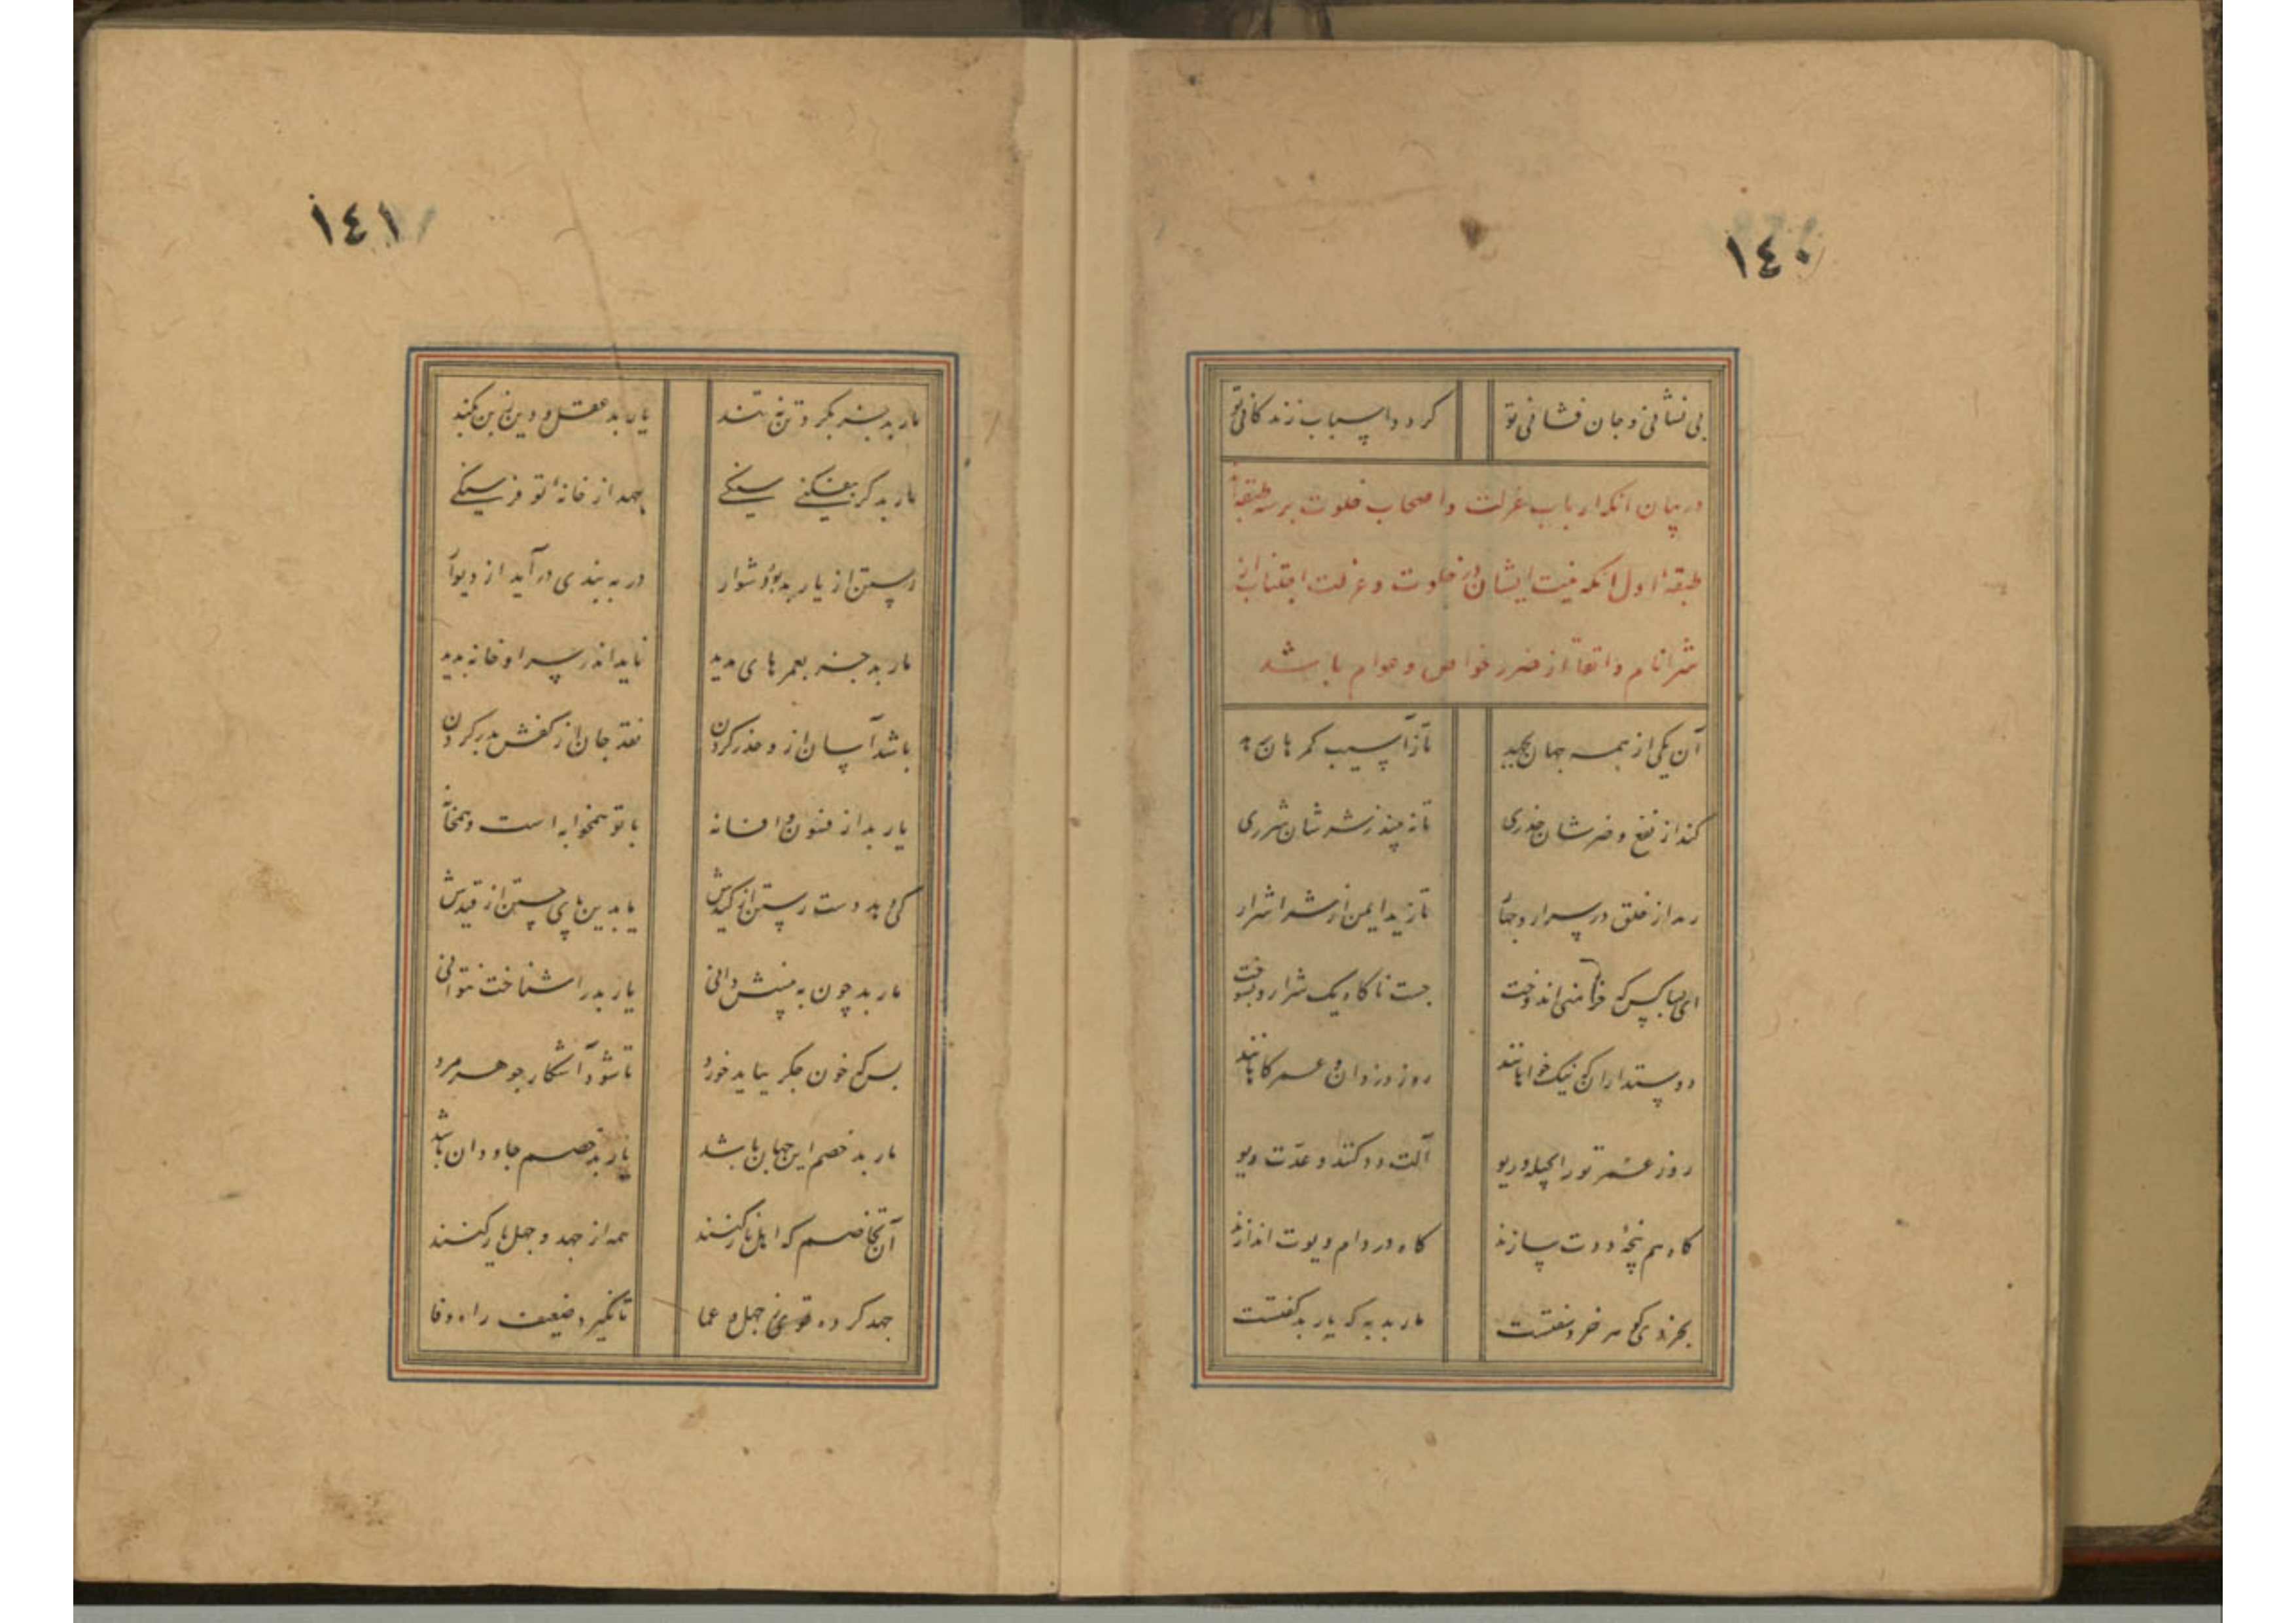 ١٤٠
بی نشانی و جان فشانی تو گردد اسباب زندگانی تو
در بیان آنکه ارباب عزلت و اصحاب خلوت بر سه طبقه‌اند
طبقهٔ اول آنکه نیت ایشان در خلوت و عزلت اجتناب از
شر انام و اتقا از ضرر خواص و عوام باشد
آن یکی از همه جهان بجهد تا ز آسیب گمرهان برهد
کند از نفع و ضرشان حذری تا نه بیند ز شرشان شرری
رمد از خلق در سرار و جهار تا زید ایمن از شر اشرار
ای بسا کس که خرمنی اندوخت جست ناگاه یک شرار و بسوخت
دوستداران که نیک خواهانند روز دزدان و عمر کاهانند
روز عمر تو را بحیله و ریو آلت دد کنند و عدت دیو
گاه هم پنجهٔ ددت سازند گاه در دام دیوت اندازند
بخردی کو گهر خرد سفتست مار بد به که یار بد گفتست
١٤١
مار بد جز بگرد تن نتند یار بد عقل و دین ز بن بکند
مار بد گر بیفکنی سنگی بجهد از خانهٔ تو فرسنگی
رستن از یار بد بود دشوار در به بندی درآید از دیوار
مار بد جز بعمرهای مدید ناید اندر سرا و خانه پدید
باشد آسان ازو حذر کردن نقد جان از کفش بدر کردن
یار بد از فنون و افسانه با تو همخوابه است و همخانه
کی دهد دست رستن از کیدش یا بدین پای جستن از قیدش
مار بد چون به بینیش دانی یار بد را شناخت نتوانی
بس که خون جگر بباید خورد تا شود آشکار جوهر مرد
مار بد خصم این جهان باشد یار بد خصم جاودان باشد
آن نجا خصم که اهل نار کنند همه از جهد و جهل یار کنند
جهد کرده قوی ز جهل و عما تا نگیرد ضعیف راه وفا